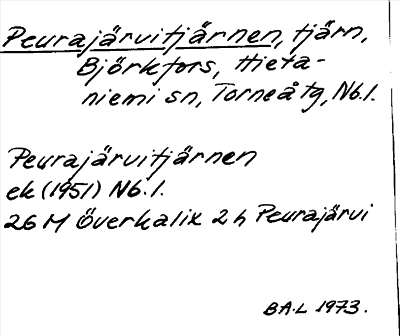 Peurajärvitjärnen, tjärn,
Björkfors, Hieta-
niemi sn, Torneå tg, Nb.l.
Peurajärvitjärnen
ek (1951) Nb.l.
26 M Överkalix 2 h Peurajärvi
BA-L 1973.